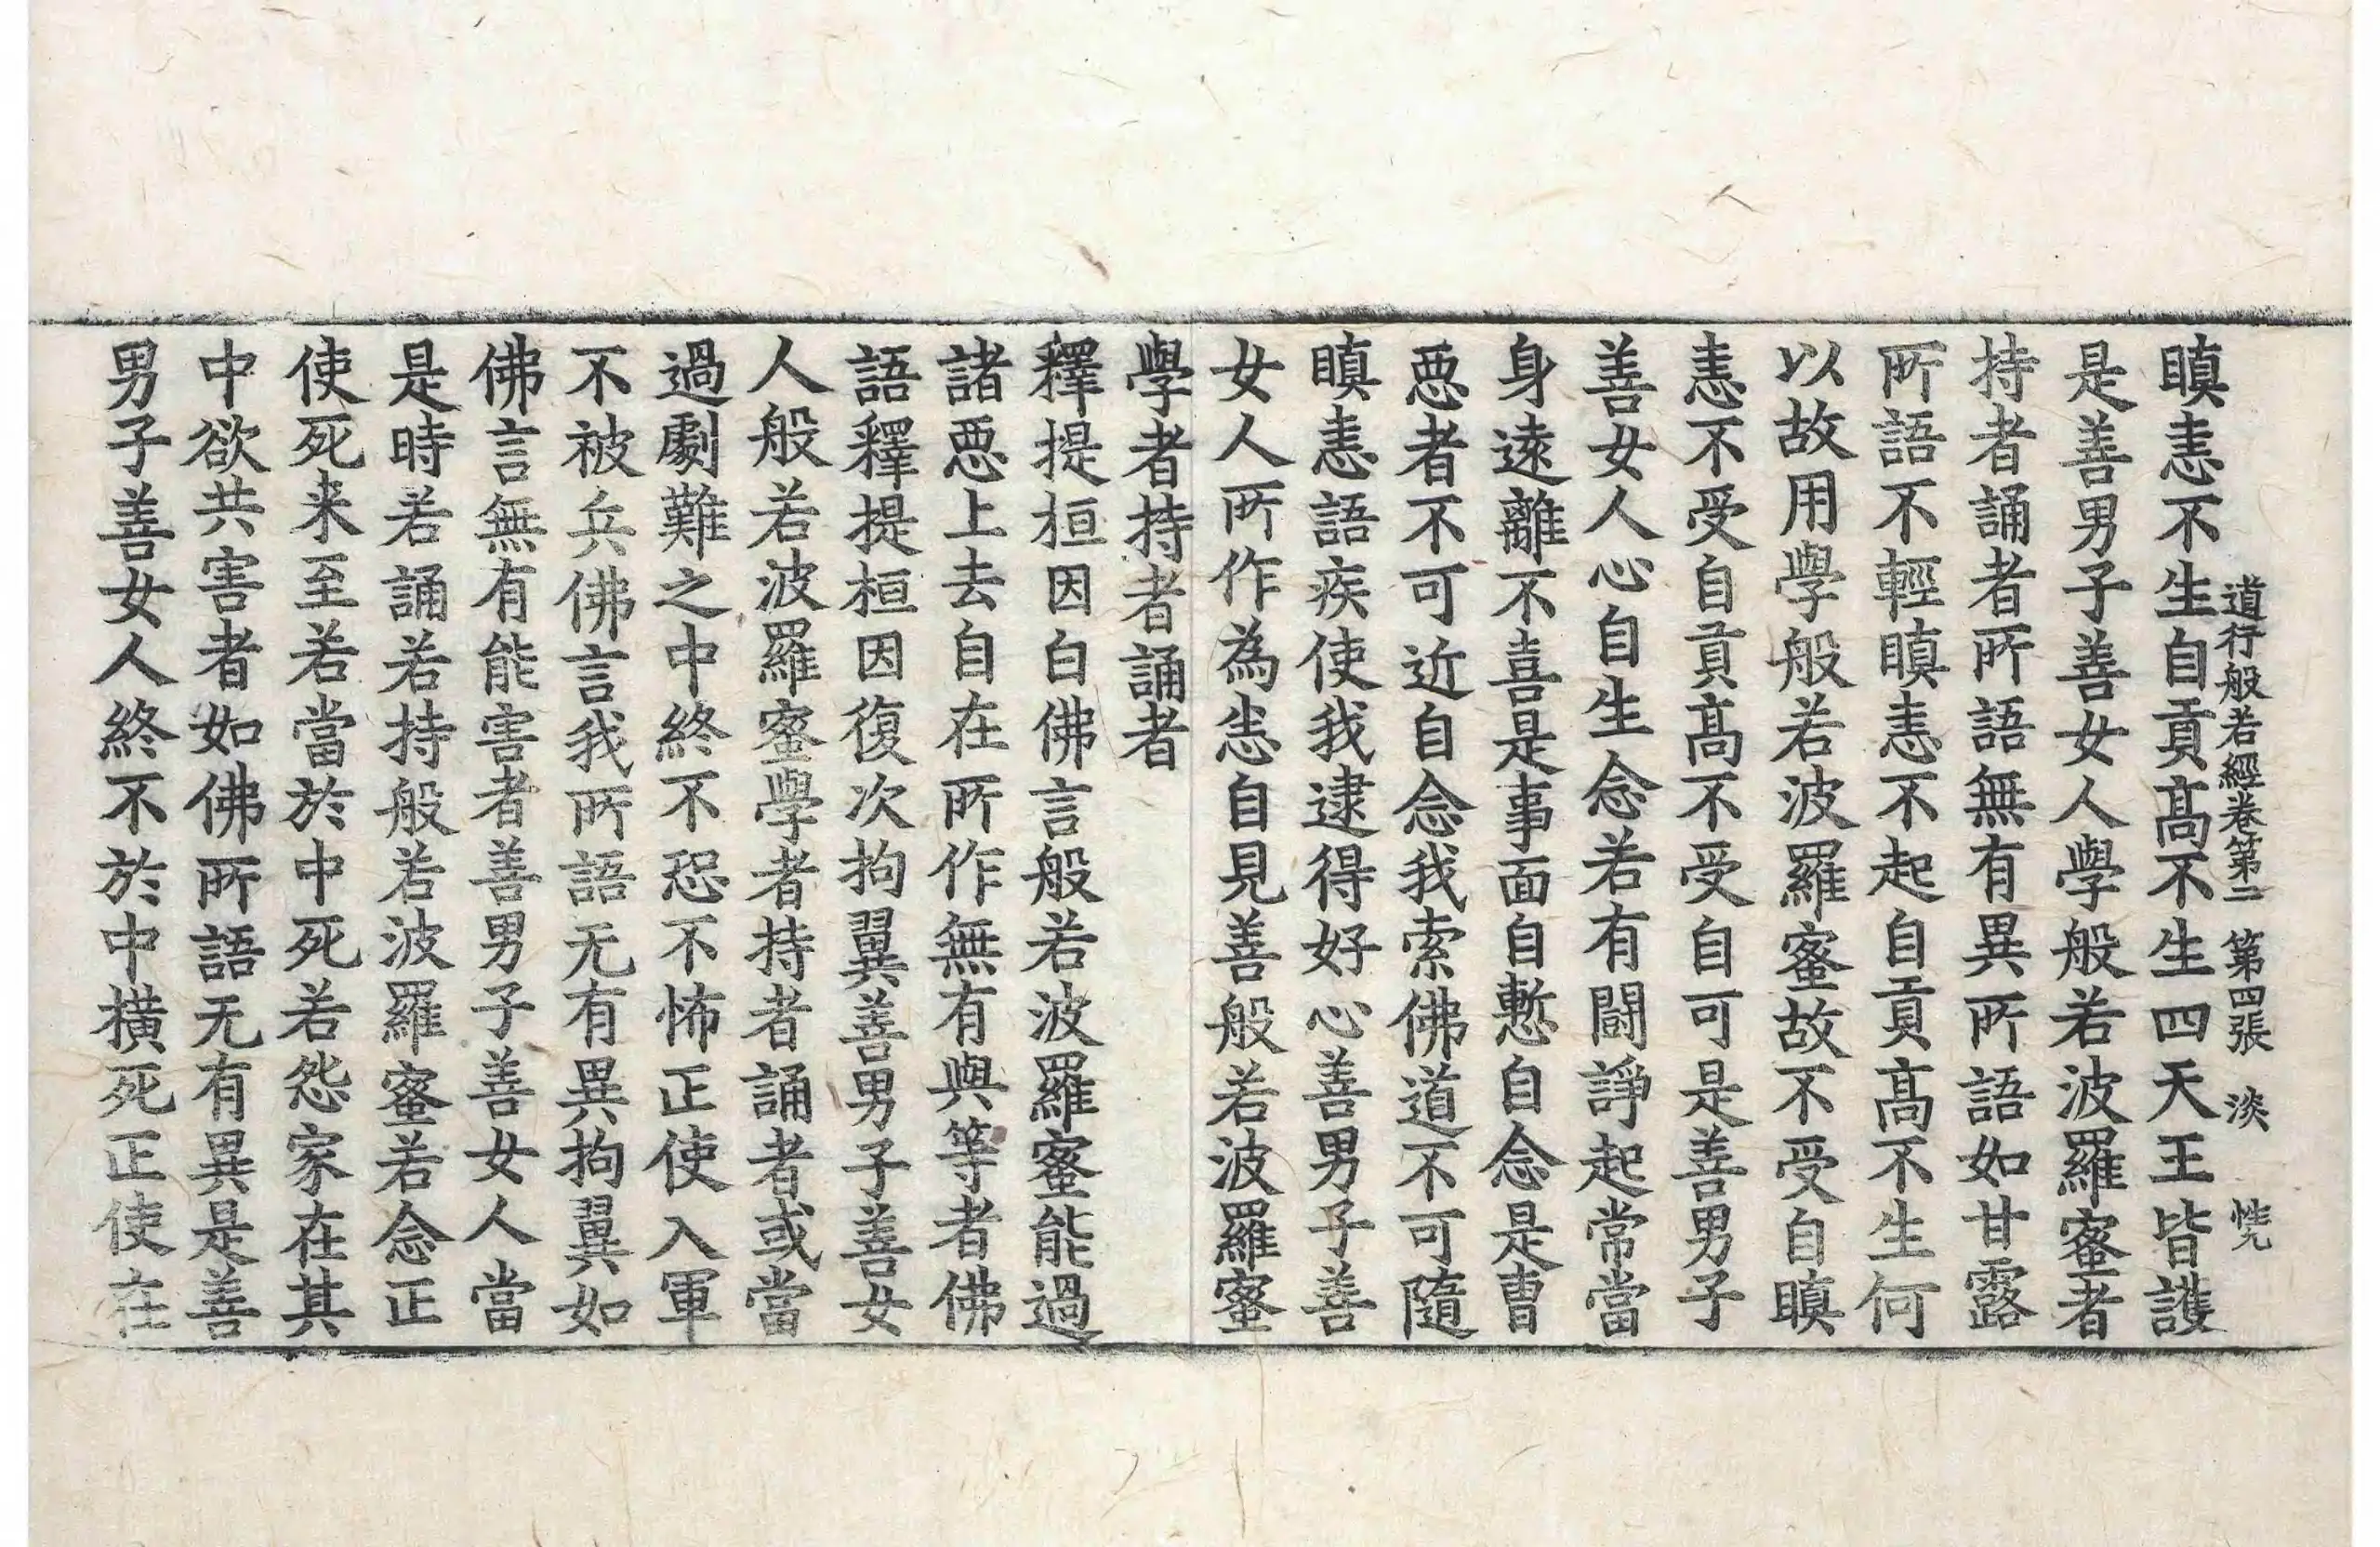 道行般若經卷第二 第四張 淡
瞋恚不生自貢高不生四天王皆護
是善男子善女人學般若波羅蜜者
持者誦者所語無有異所語如甘露
所語不輕瞋恚不起自貢高不生何
以故用學般若波羅蜜故不受自瞋
恚不受自貢高不受自可是善男子
善女人心自生念若有鬪諍起常當
身遠離不喜是事面自慙自念是曹
惡者不可近自念我索佛道不可隨
瞋恚語疾使我逮得好心善男子善
女人所作為恙自見善般若波羅蜜
學者持者誦者
釋提桓因白佛言般若波羅蜜能過
諸惡上去自在所作無有與等者佛
語釋提桓因復次拘翼善男子善女
人般若波羅蜜學者持者誦者或當
過劇難之中終不恐不怖正使入軍
不被兵佛言我所語无有異拘翼如
佛言無有能害者善男子善女人當
是時若誦若持般若波羅蜜若念正
使死来至若當於中死若怨家在其
中欲共害者如佛所語无有異是善
男子善女人終不於中橫死正使在